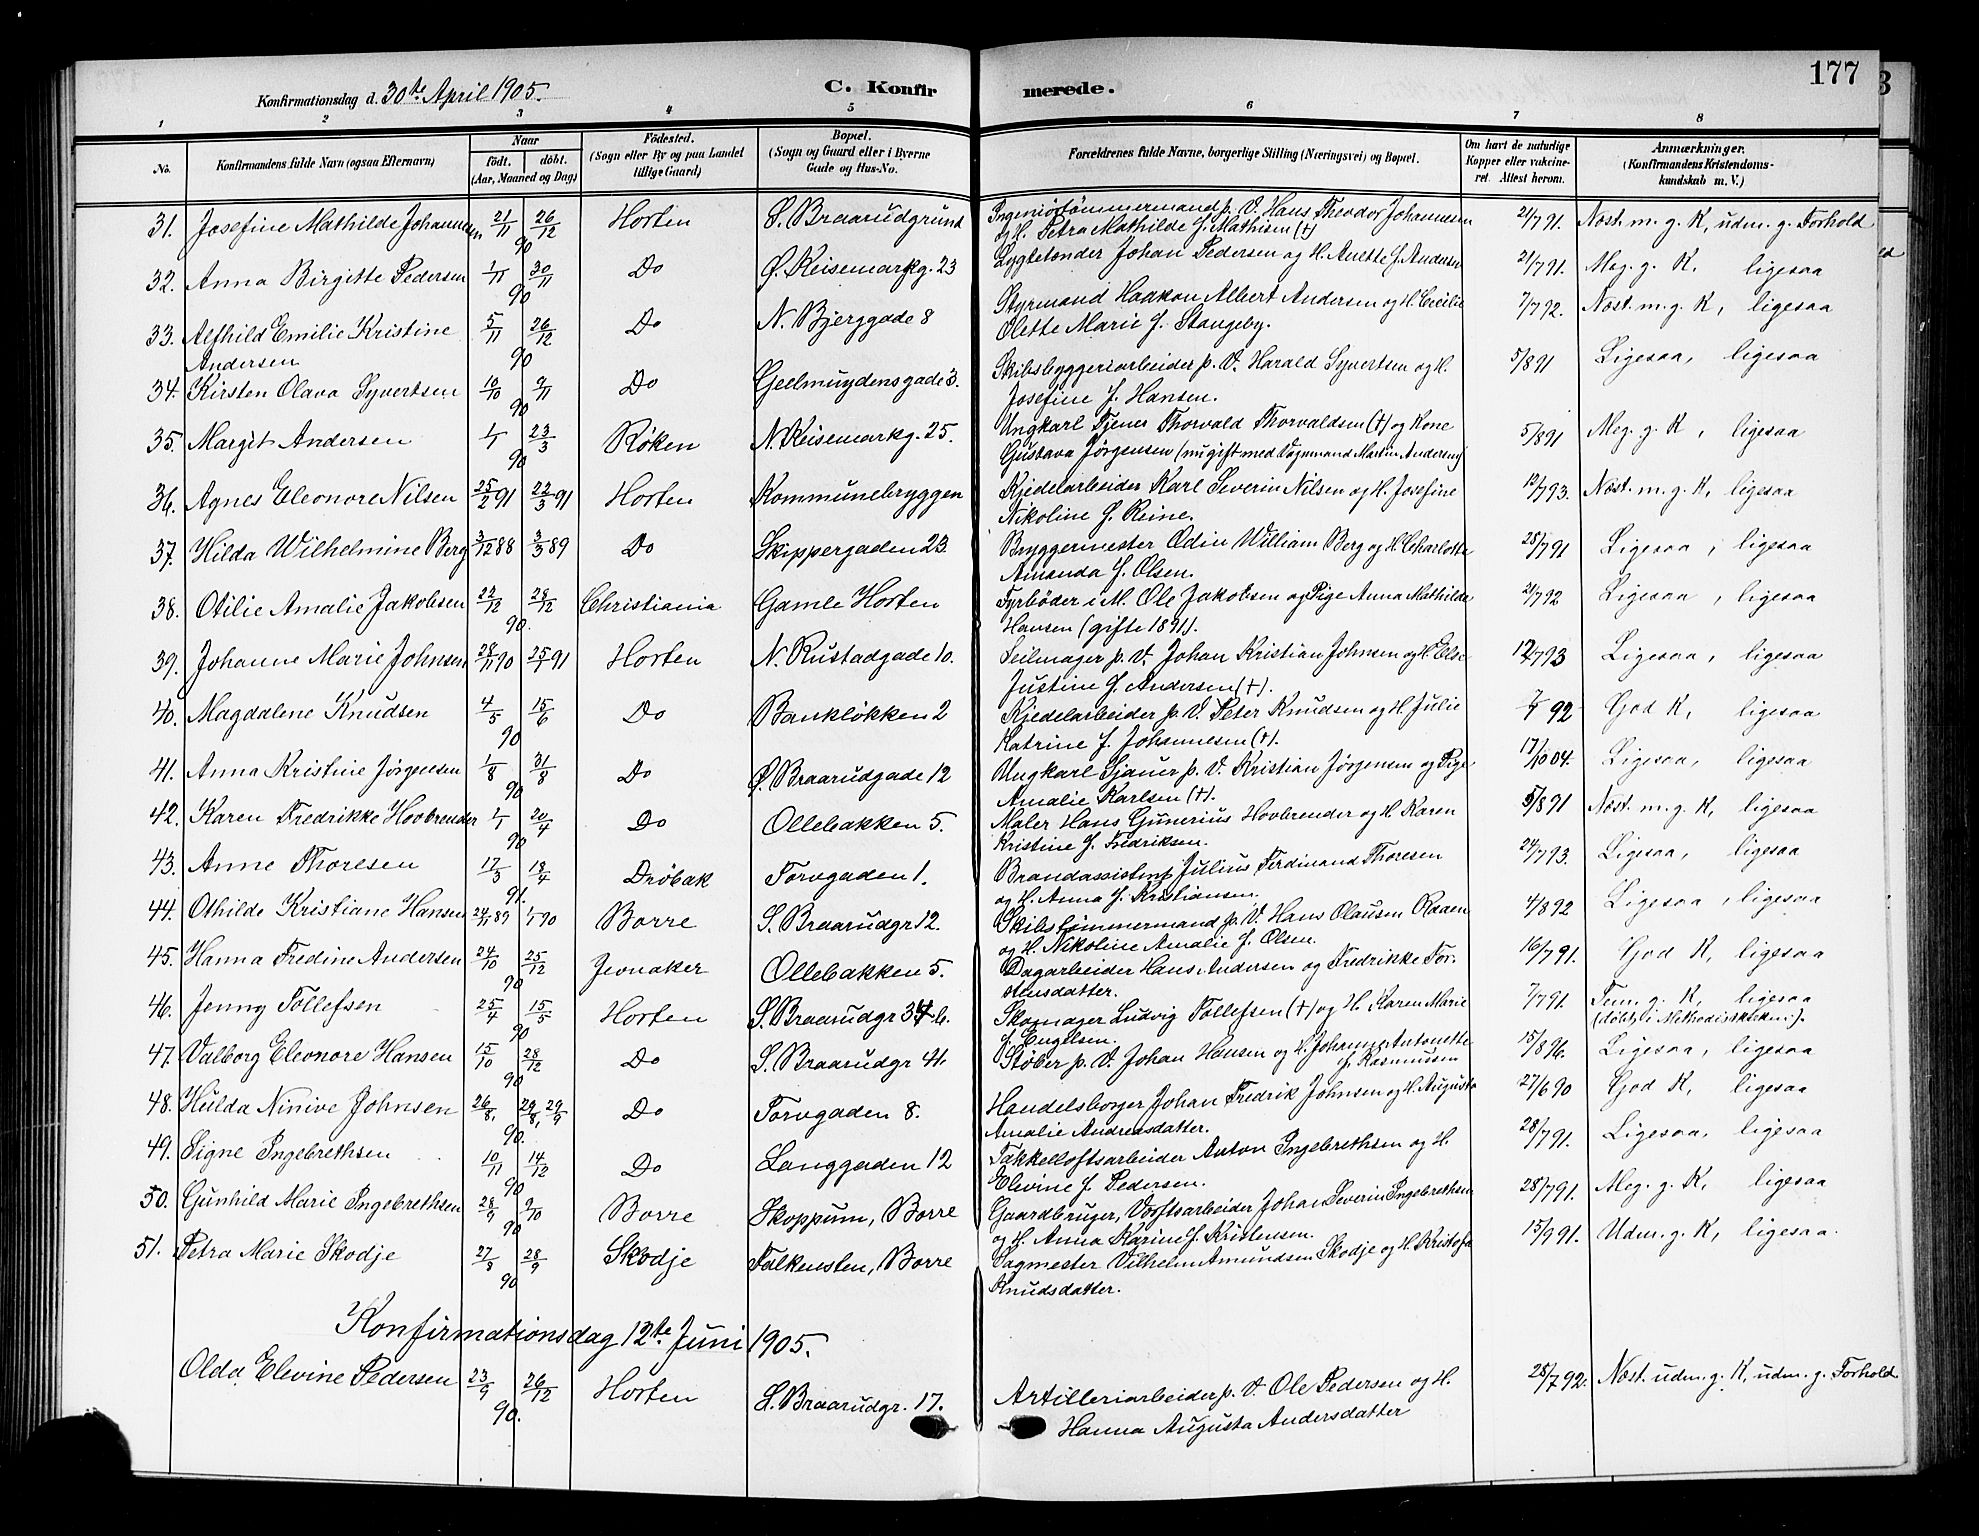 177
Konfirmationsdag d. 30te April 1905. C. Konfir merede.
1 2 3 4 5 6 7 8
No. Konfirmandens fulde Navn (ogsaa Efternavn) Naar født. døbt. (Aar, Maaned og Dag) Födested. (Sogn eller By og paa Landet tillige Gaard) Bopæl. (Sogn og Gaard eller i Byerne Gade og Hus-No. Forældrenes fulde Navne, borgerlige Stilling (Næringsvei) og Bopæl. Om havt de naturlige Kopper eller vakcineret. Attest herom. Anmærkninger. (Konfirmandens Kristendomskundskab m. V.)
31. Josefine Mathilde Johannesen 21/11 26/12 90 Horten S. Braarudgrund Ingeniørtømmermand p. V. Hans Theodor Johannesen 21/791. Næst. m. g. K, udm. g. Forhold
og H. Petra Mathilde f. Mathisen (†)
32. Anna Birgitte Pedersen 1/11 30/11 90 Do Ø. Keisemarkg. 23 Lygtetænder Johan Pedersen og H. Anette f. Andersen 21/791. Meg. g. K, ligesaa
33. Alfhild Emilie Kristine 5/11 26/12 90 Do N. Bjerggade 8 Styrmand Haakon Albert Andersen og H. Cecilie 7/792. Næst. m. g. K, ligesaa
Andersen Olette Marie f. Stangeby.
34. Kirsten Olava Syvertsen 10/10 9/11 90 Do Geelmuydensgade 3. Skibsbyggeriarbeider p. V. Harald Syvertsen og H. 5/891 Ligesaa, ligesaa
Josefine f. Hansen.
35. Margit Andersen 1/1 23/3 90 Røken N. Keisemarkg. 25. Ungkarl Tjener Thorvald Thorvaldsen (†) og Kone 5/891 Meg. g. K, ligesaa
Gustava Jørgensen (nu gift med Vognmand Martin Andersen)
36. Agnes Eleonore Nilsen 25/2 91 22/3 91 Horten Kommunebryggen Kjedelarbeider Karl Severin Nilsen og H. Josefine 12/793. Næst. m. g. K, ligesaa
Nikoline f. Reine.
37. Hilda Wilhelmine Berg 3/12 88 3/3 89 Do Skippergaden 23. Bryggermester Odin William Berg og H. Charlotte 28/791 Ligesaa, ligesaa
Amanda f. Olsen.
38. Otilie Amalie Jakobsen 22/12 28/12 90. Christiania Gamle Horten Fyrbøder i M. Ole Jakobsen og Pige Anna Mathilde 21/792 Ligesaa, ligesaa
Hansen (gifte 1891).
39. Johanne Marie Johnsen 28/11 90 25/1 91 Horten N. Rustadgade 10. Seilmager p. V. Johan Kristian Johnsen og H. Else 12/793 Ligesaa, ligesaa
Justine f. Andersen (†).
40. Magdalene Knudsen 4/5 15/6 90 Do Bankløkken 2 Kjedelarbeider p. V. Peter Knudsen og H. Julie 7/7 92 God K, ligesaa
Katrine f. Johannesen (†).
41. Anna Kristine Jørgensen 1/8 31/8 90 Do Ø. Braarudgade 12 Ungkarl Sjauer p. V. Kristian Jørgensen og Pige 17/10 04. Ligesaa, ligesaa
Amalie Karlsen (†).
42. Karen Fredrikke Hovbrender 1/1 20/4 90 Do Ollebakken 5. Maler Hans Gunerius Hovbrender og H. Karen 5/891 Næst. m. g. K, ligesaa
Kristine f. Fredriksen.
43. Anne Thoresen 17/3 18/4 91. Drøbak Torvgaden 1. Brandassistent Julius Ferdinand Thoresen 24/793. Ligesaa, ligesaa
og H. Anna f. Kristiansen.
44. Othilde Kristiane Hansen 24/11 89 1/1 90 Borre S. Braarudgr 12. Skibstømmermand p. V. Hans Olausen Raaen 4/892 Ligesaa, ligesaa
og H. Nikoline Amalie f. Olsen.
45. Hanna Fredine Andersen 24/10 25/12 90 Jevnaker Ollebakken 5. Dagarbeider Hans Andersen og Fredrikke Tor- 16/791. God K, ligesaa
stensdatter.
46. Jenny Tollefsen 25/4 15/5 90 Horten S. Braarudgr 34 b. Skomager Ludvig Tollefsen (†) og H. Karen Marie 7/791. Tem. g. K, ligesaa
f. Engelsen. (døbt i Methodistkirken.).
47. Valborg Eleonore Hansen 15/10 28/12 90 Do S. Braarudgr 41. Støber p. V. Johan Hansen og H. Johanne Antonette 15/896. Ligesaa, ligesaa
f. Rasmussen
48. Hulda Ninive Johnsen 26/8, 29/8, 29/9 90. Do Torvgaden 8. Handelsborger Johan Fredrik Johnsen og H. Augusta 27/690 God K, ligesaa
Amalie Andreasdatter.
49. Signe Ingebrethsen 10/11 14/12 90 Do Langgaden 12 Takkelloftsarbeider Anton Ingebrethsen og H. 28/791. Ligesaa, ligesaa
Elevine f. Pedersen.
50. Gunhild Marie Ingebrethsen 28/9 9/10 90 Borre Skoppum, Borre Gaardbruger, Værftsarbeider Johan Severin Ingebrethsen 28/791. Meg. g. K, ligesaa
og H. Anna Karine f. Kristensen.
51. Petra Marie Skodje 27/8 28/9 90 Skodje Falkensten, Borre Sagmester Vilhelm Amundsen Skodje og H. Kristofa 15/991. Udm. g. K, ligesaa.
Knudsdatter.
Konfirmationsdag 12te Juni 1905.
Olda Elevine Pedersen 23/9 26/12 90. Horten S. Braarudgr. 17. Artilleriarbeider p. V. Ole Pedersen og H. 28/792. Næst. udm. g. K, udm. g. Forhold
Hanna Augusta Andersdatter